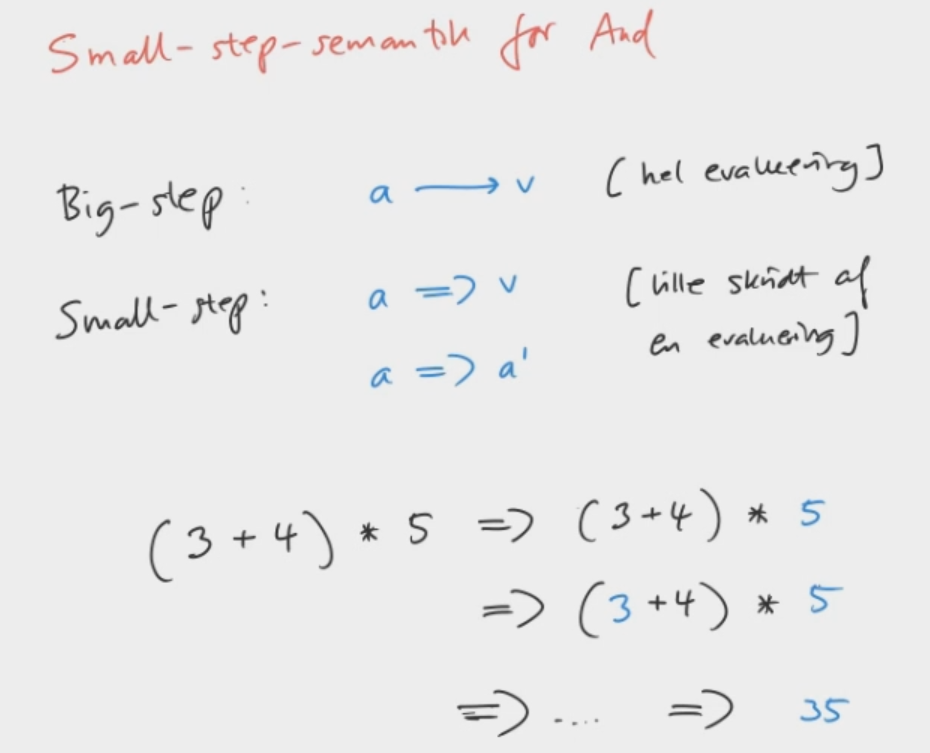 Small-step-semantik for And
Big-step: a → v [hel evaluering]
Small-step: a => v [lille skridt af
en evaluering]
a => a'
(3+4) * 5 => (3+4) * 5
=> (3+4) * 5
=> .... => 35